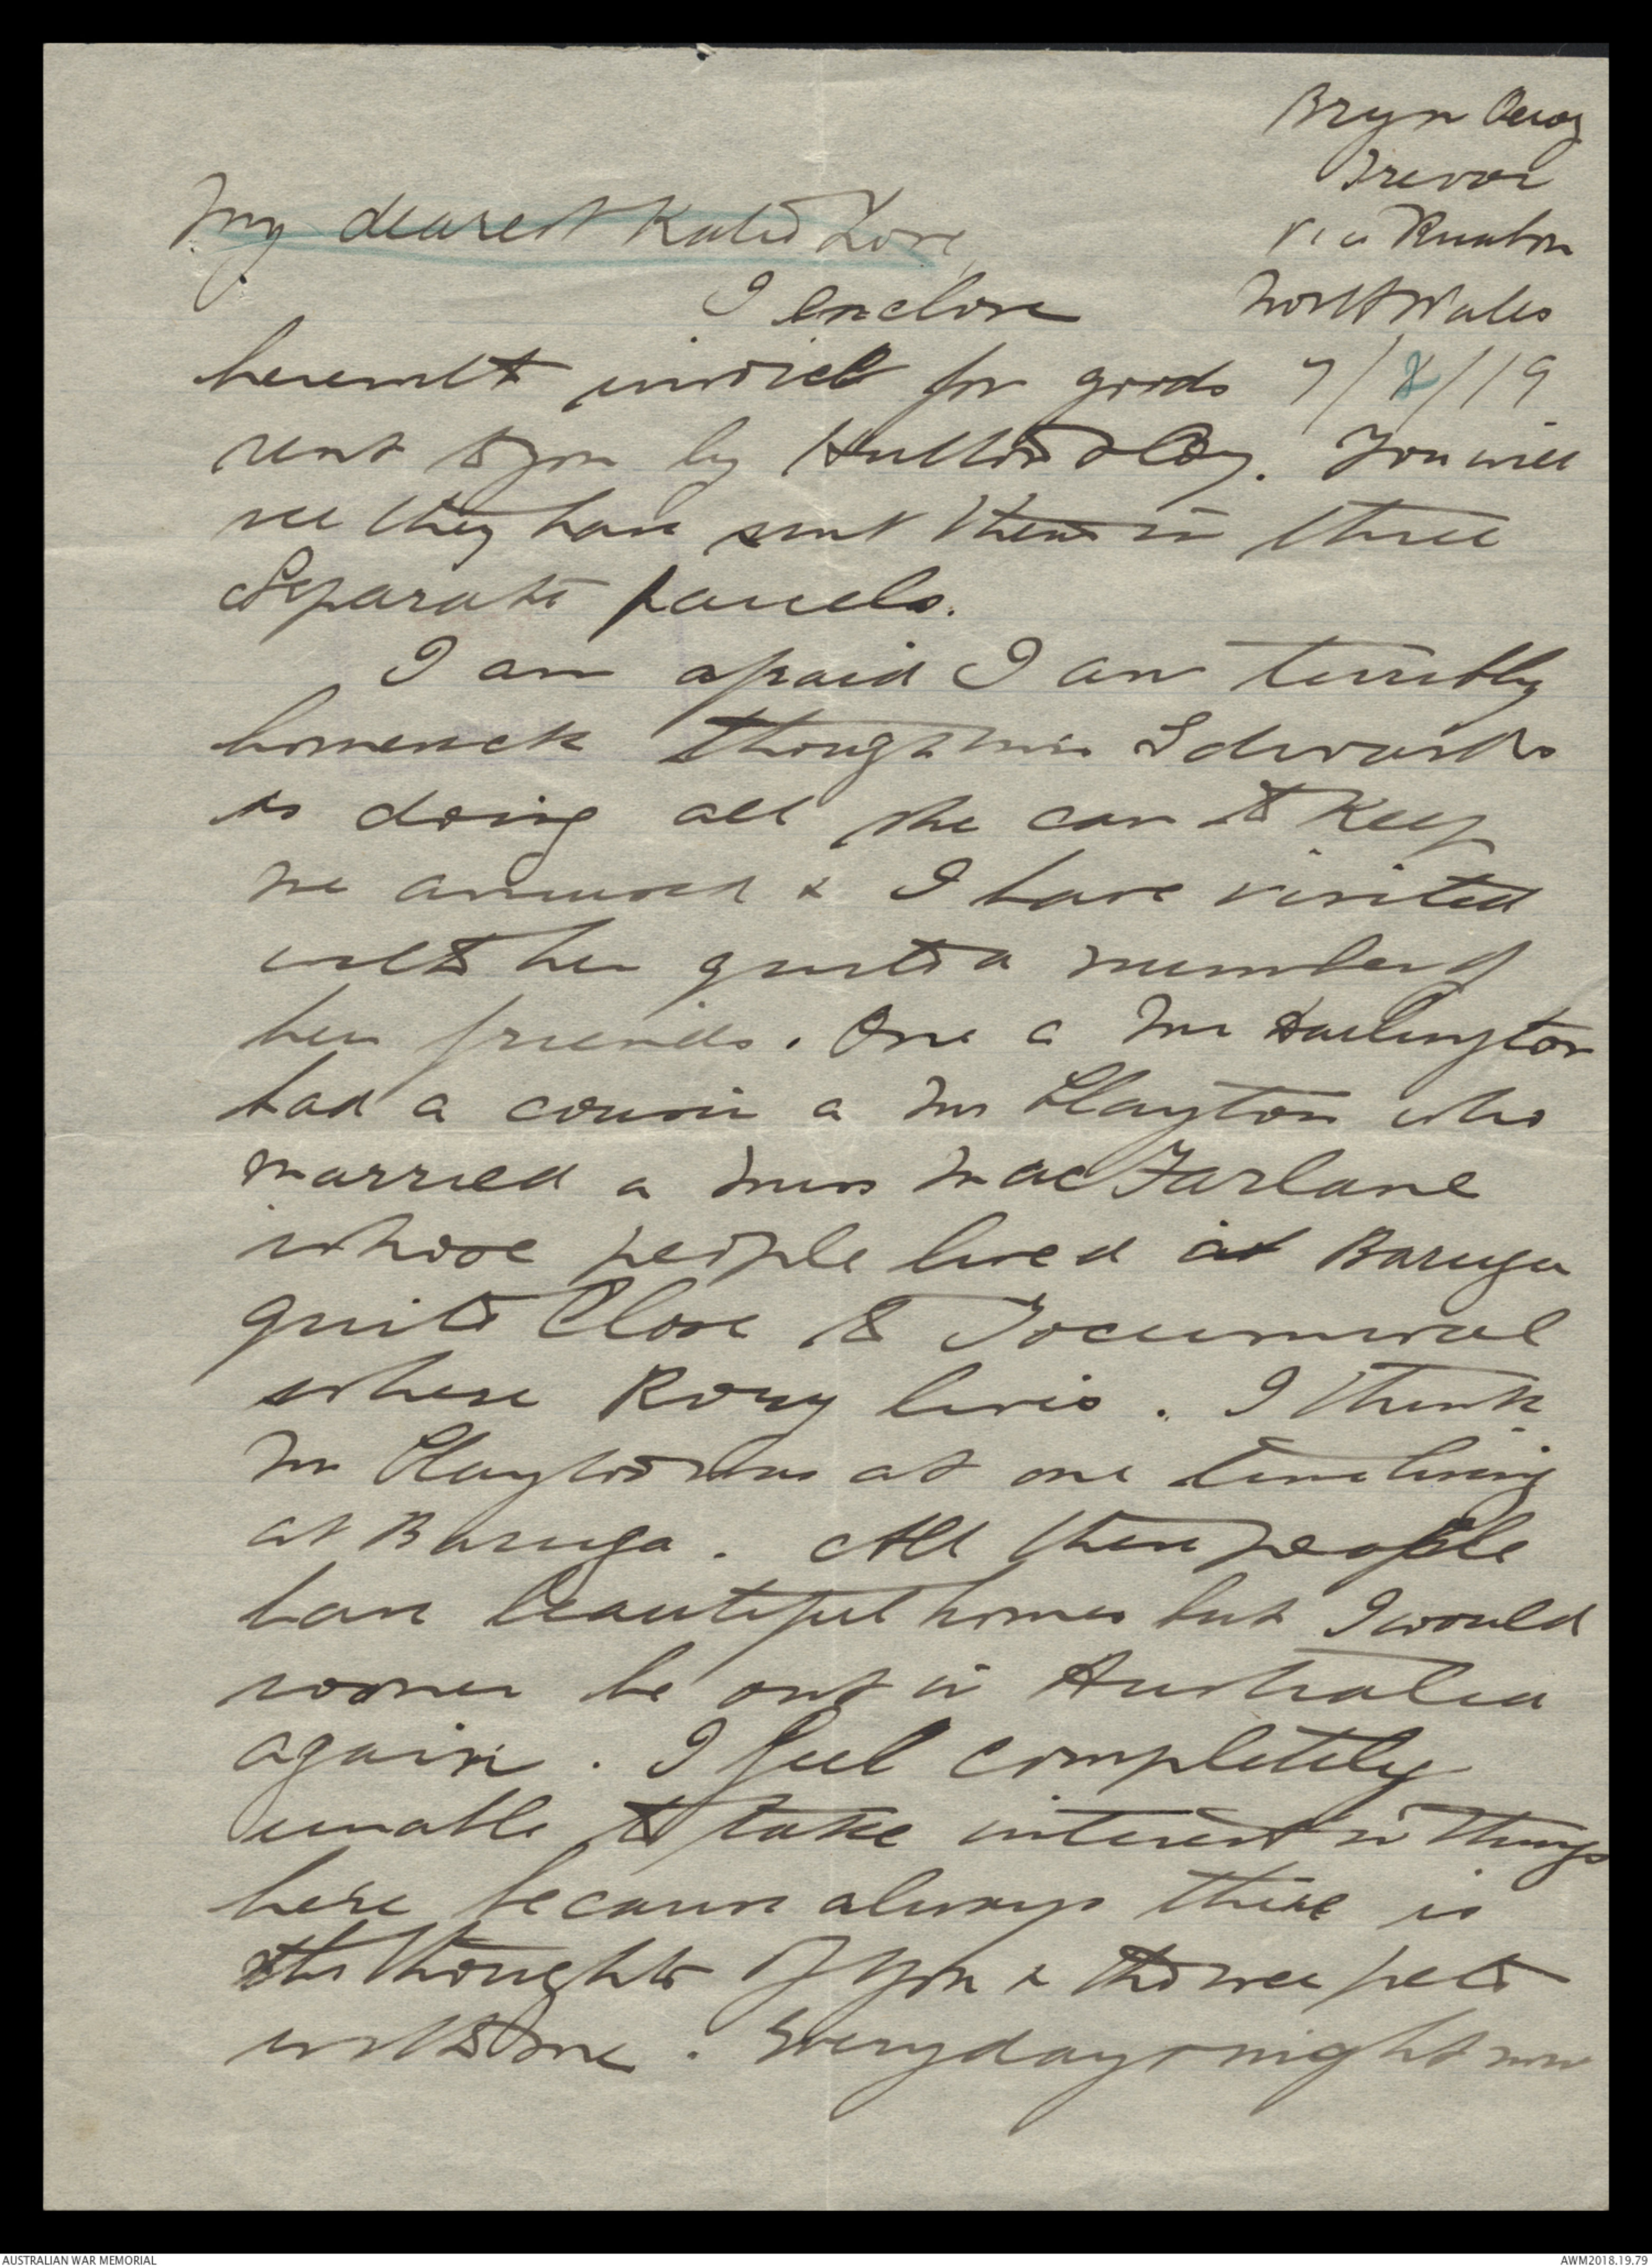 Bryn
Trevor
My dearest Katie Love,
via Ruabon
I enclose
North Wales
herewith invoice for goods
7/2/19
sent to you by &Coy. You will
see they have sent them in three
Separate parcels.
I am afraid I am terribly
homesick though Mrs Edwards
is doing all she can to keep
me amused & I have visited
with her quite a number of
her friends. One a Mr Darlington
had a cousin a Mr Clayton who
married a Miss MacFarlane
whose people lived at Baruga
quite Close to Tocumwal
where Rosy lives. I think
Mr Clayton was at one time living
at Baruga. All these people
have beautiful homes but I would
sooner be out in Australia
again. I feel completely
unable to take interest in things
here because always there is
the thoughts of you & the wee pets
with me. Every day & night now
AUSTRALIAN WAR MEMORIAL
AWM2018.19.79